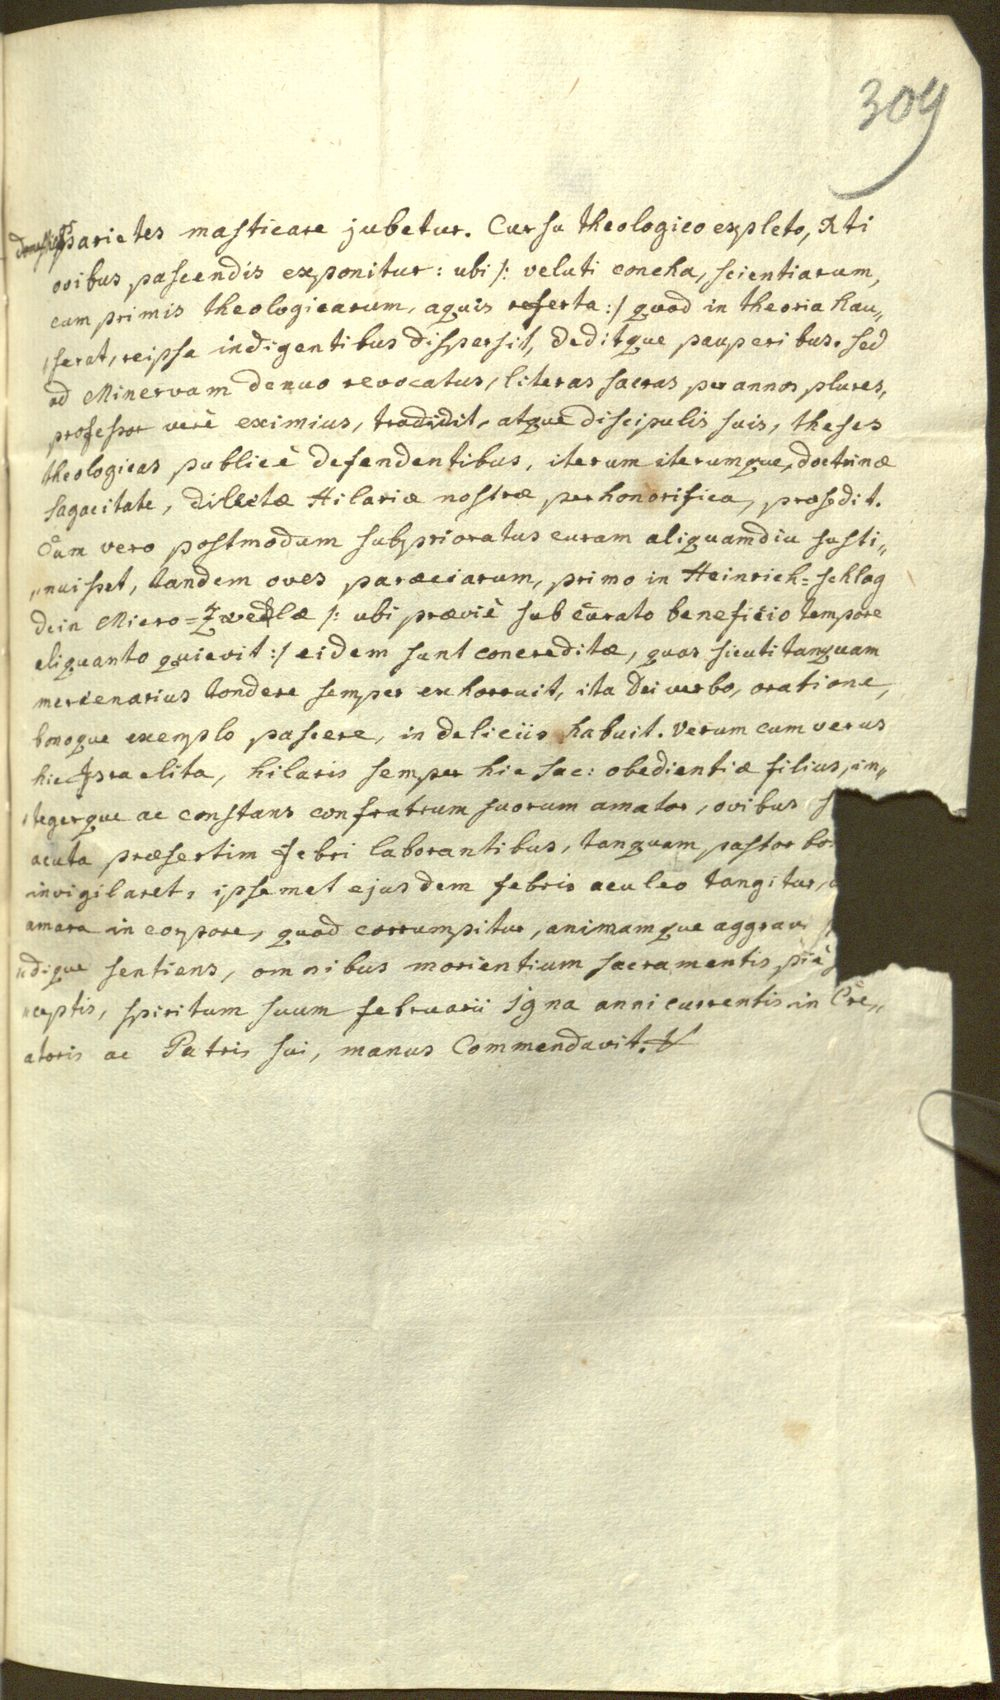 309
parietes masticare jubetur. Cursu theologico expleto, Xti
ovibus pascendis exponitur: ubi /: veluti concha, scientiarum,
cum primis theologicarum, aquis referta :/ quod in theoria hau„
„serat, reipsa indigentibus dispersit, deditque pauperibus. sed
ad Minervam denuo revocatus, literas sacras per annos plures,
professor verè eximius, tradidit, atque discipulis suis, theses
theologicas publicè defendentibus, iterum iterumque, doctrinæ
sagacitate, dilectæ Hilariæ nostræ perhonorifica, præsedit.
Cum vero postmodum subprioratus curam aliquamdiu susti„
„nuisset, tandem oves paræciarum, primo in Heinrich=schlag
dein Micro=Zwedlæ /: ubi præviè sub curato beneficio tempore
aliquanto quievit :/ eidem sunt concreditæ, quas sicuti tanquam
mercenarius tondere semper exhorruit, ita Dei verbo, oratione,
bonoque exemplo pascere, in deliciis habuit. Verum cum verus
hic Israelita, hilaris semper hic sac: obedientiæ filius, in„
„tegerque ac constans confratrum suorum amator, ovibus
acuta præsertim febri laborantibus, tanquam pastor
invigilaret, ipsemet ejusdem febris aculeo tangitur,
amara in corpore, quod corrumpitur, animamque
sentiens, omnibus morientium sacramentis piè
„ceptis, spiritum suum februarii 19na anni currentis in Cre„
atoris ac Patris sui, manus Commendavit.